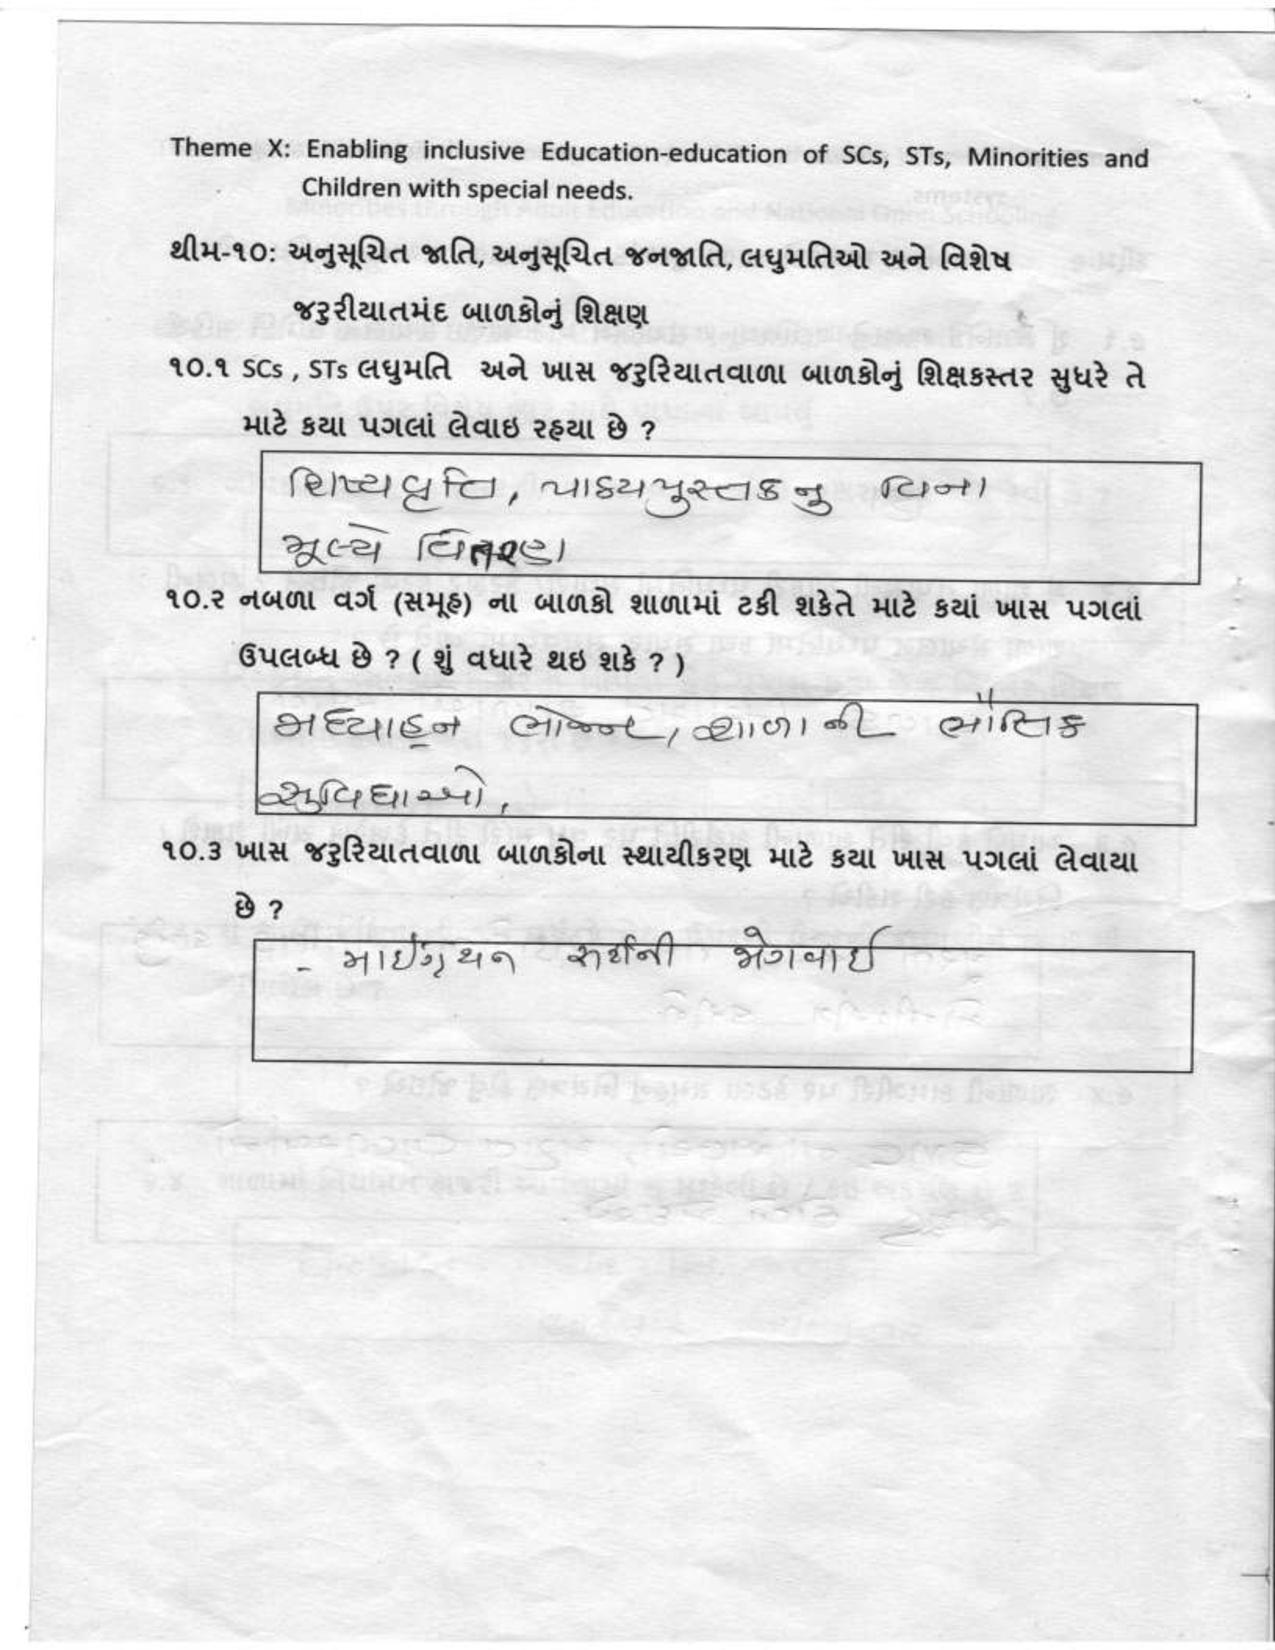 Theme X: Enabling inclusive Education-education of SCs, STs, Minorities and
Children with special needs.
થીમ-૧૦: અનુસૂચિત જાતિ, અનુસૂચિત જનજાતિ, લઘુમતિઓ અને વિશેષ
જરુરીયાતમંદ બાળકોનું શિક્ષણ
૧૦.૧ SCs , STs લઘુમતિ અને ખાસ જરુરિયાતવાળા બાળકોનું શિક્ષકસ્તર સુધરે તે
માટે કયા પગલાં લેવાઇ રહયા છે ?
શિષ્યવૃત્તિ, પાઠયપુસ્તકનુ વિના
મૂલ્યે વિતરણ
૧૦.૨ નબળા વર્ગ (સમૂહ) ના બાળકો શાળામાં ટકી શકેતે માટે કયાં ખાસ પગલાં
ઉપલબ્ધ છે ? ( શું વધારે થઇ શકે ? )
મધ્યાહન ભોજન, શાળાની ભૌતિક
સુવિધાઓ,
૧૦.૩ ખાસ જરુરિયાતવાળા બાળકોના સ્થાયીકરણ માટે કયા ખાસ પગલાં લેવાયા
છે ?
- માર્ઇગ્રેશન